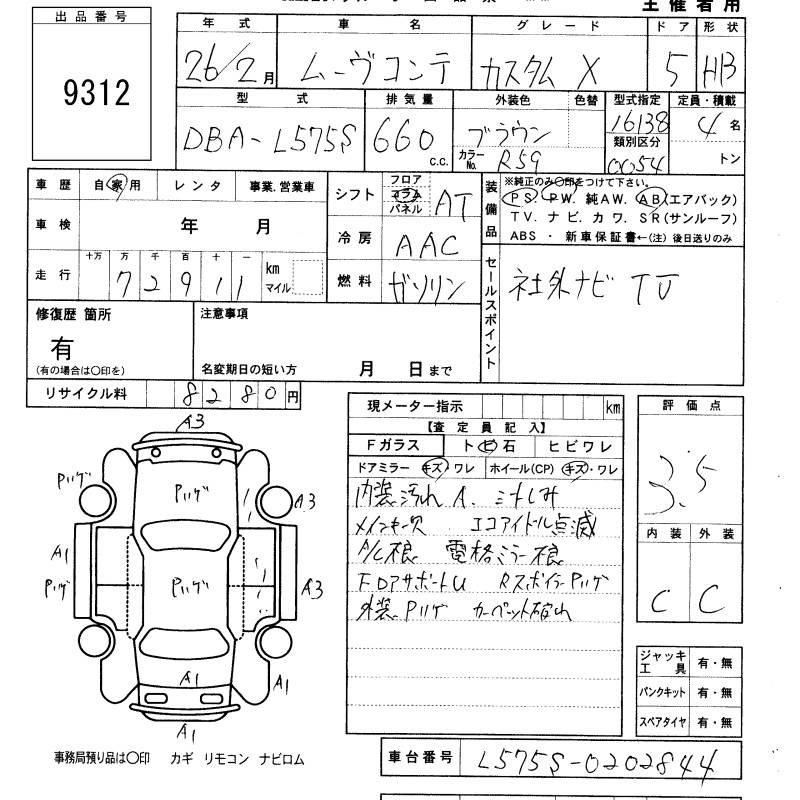 主催者用
出品番号
9312
年式 車名 グレード ドア 形状
26/2月 ムーヴコンテ カスタム X 5 HB
型式 排気量 外装色 色替 型式指定 定員・積載
DBA-L575S 660 c.c. ブラウン 16138 4名
カラーNo. R59 類別区分 0054 トン
車歴 自家用 レンタ 事業.営業車
シフト フロア コラム パネル AT
装備品 ※純正のみ○印をつけて下さい。
PS. PW. 純AW. AB(エアバック)
TV. ナビ. カワ. SR(サンルーフ)
ABS ・ 新車保証書←(注) 後日送りのみ
車検 年 月
冷房 AAC
走行 十万 万 千 百 十 一 km マイル
72911
燃料 ガソリン
セールスポイント 社外ナビ TV
修復歴 箇所
有
(有の場合は○印を)
注意事項
名変期日の短い方 月 日まで
リサイクル料 8280円
現メーター指示 km
評価点
3.5
【査定員記入】
Fガラス トビ石 ヒビワレ
ドアミラー キズ・ワレ ホイール(CP) キズ・ワレ
内装汚れ A. シートしみ
メインキー欠 エコアイドル点滅
A/C 電格ミラー
FDアサポートU RスポイラーPハゲ
外装Pハゲ カーペット
内装 外装
C C
A3
Pハゲ
Pハゲ
A3
A1
Pハゲ
Pハゲ
A3
A1
A1
A1
ジャッキ工具 有・無
パンクキット 有・無
スペアタイヤ 有・無
事務局預り品は○印 カギ リモコン ナビロム
車台番号 L575S-0202844